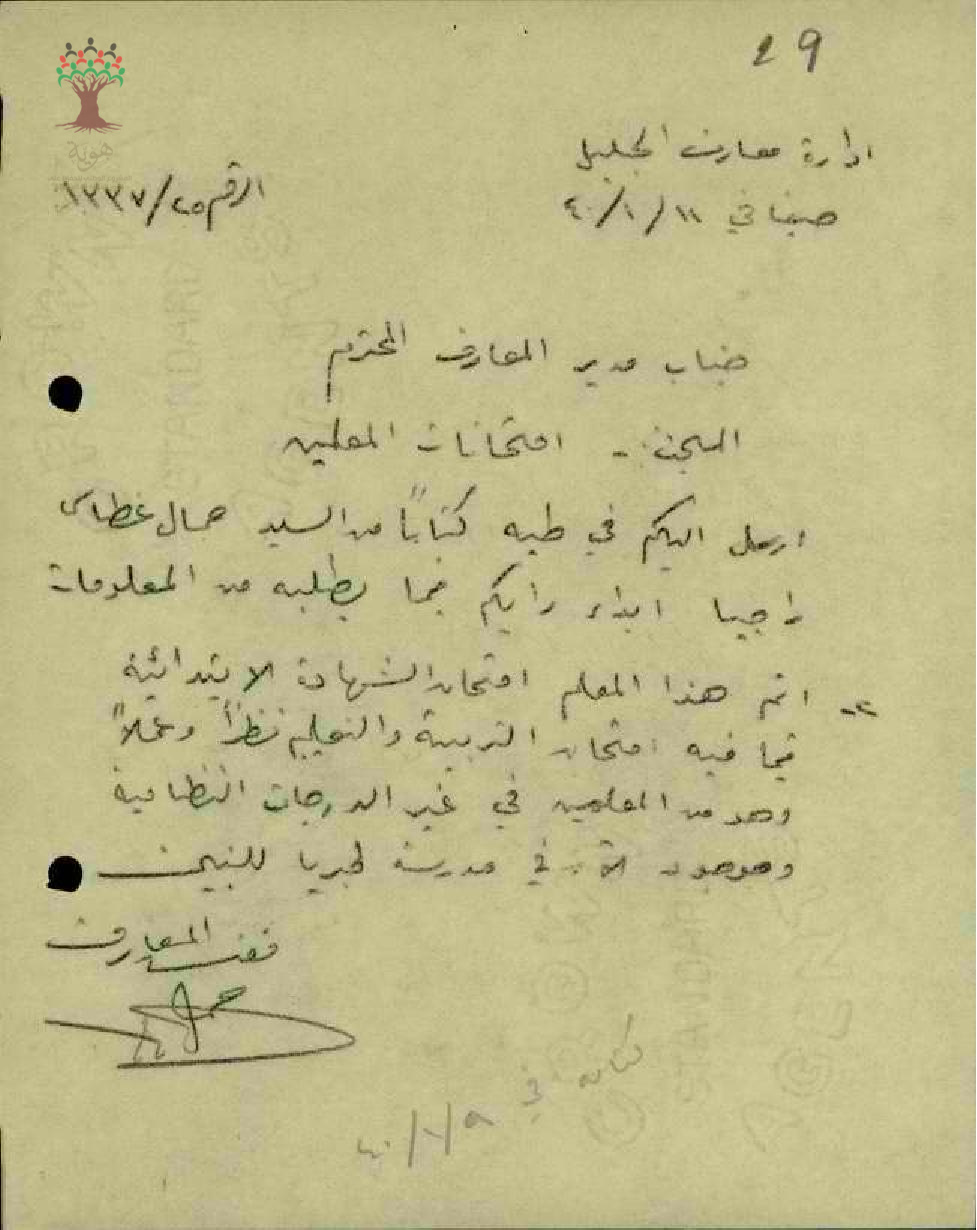 29
هوية
ادارة معارف الجليل
صفد في ١١/١/٤٠
الرقم ٢٥/١٣٣٧
جناب مدير المعارف المحترم
المبحث - امتحانات المعلمين
ارسل اليكم في طيه كتاباً من السيد جمال غطاس
راجيا ابداء رأيكم فيما يطلبه من المعلومات
٢- اتم هذا المعلم امتحان الشهادة الابتدائية
بما فيه امتحان التربية والتعليم نظراً وعملاً
وهو من المعلمين في غير الدرجات النظامية
وهو موجود الآن في مدرسة طبريا للبنين
مفتش المعارف
كتابه في ٩/١/٤٠